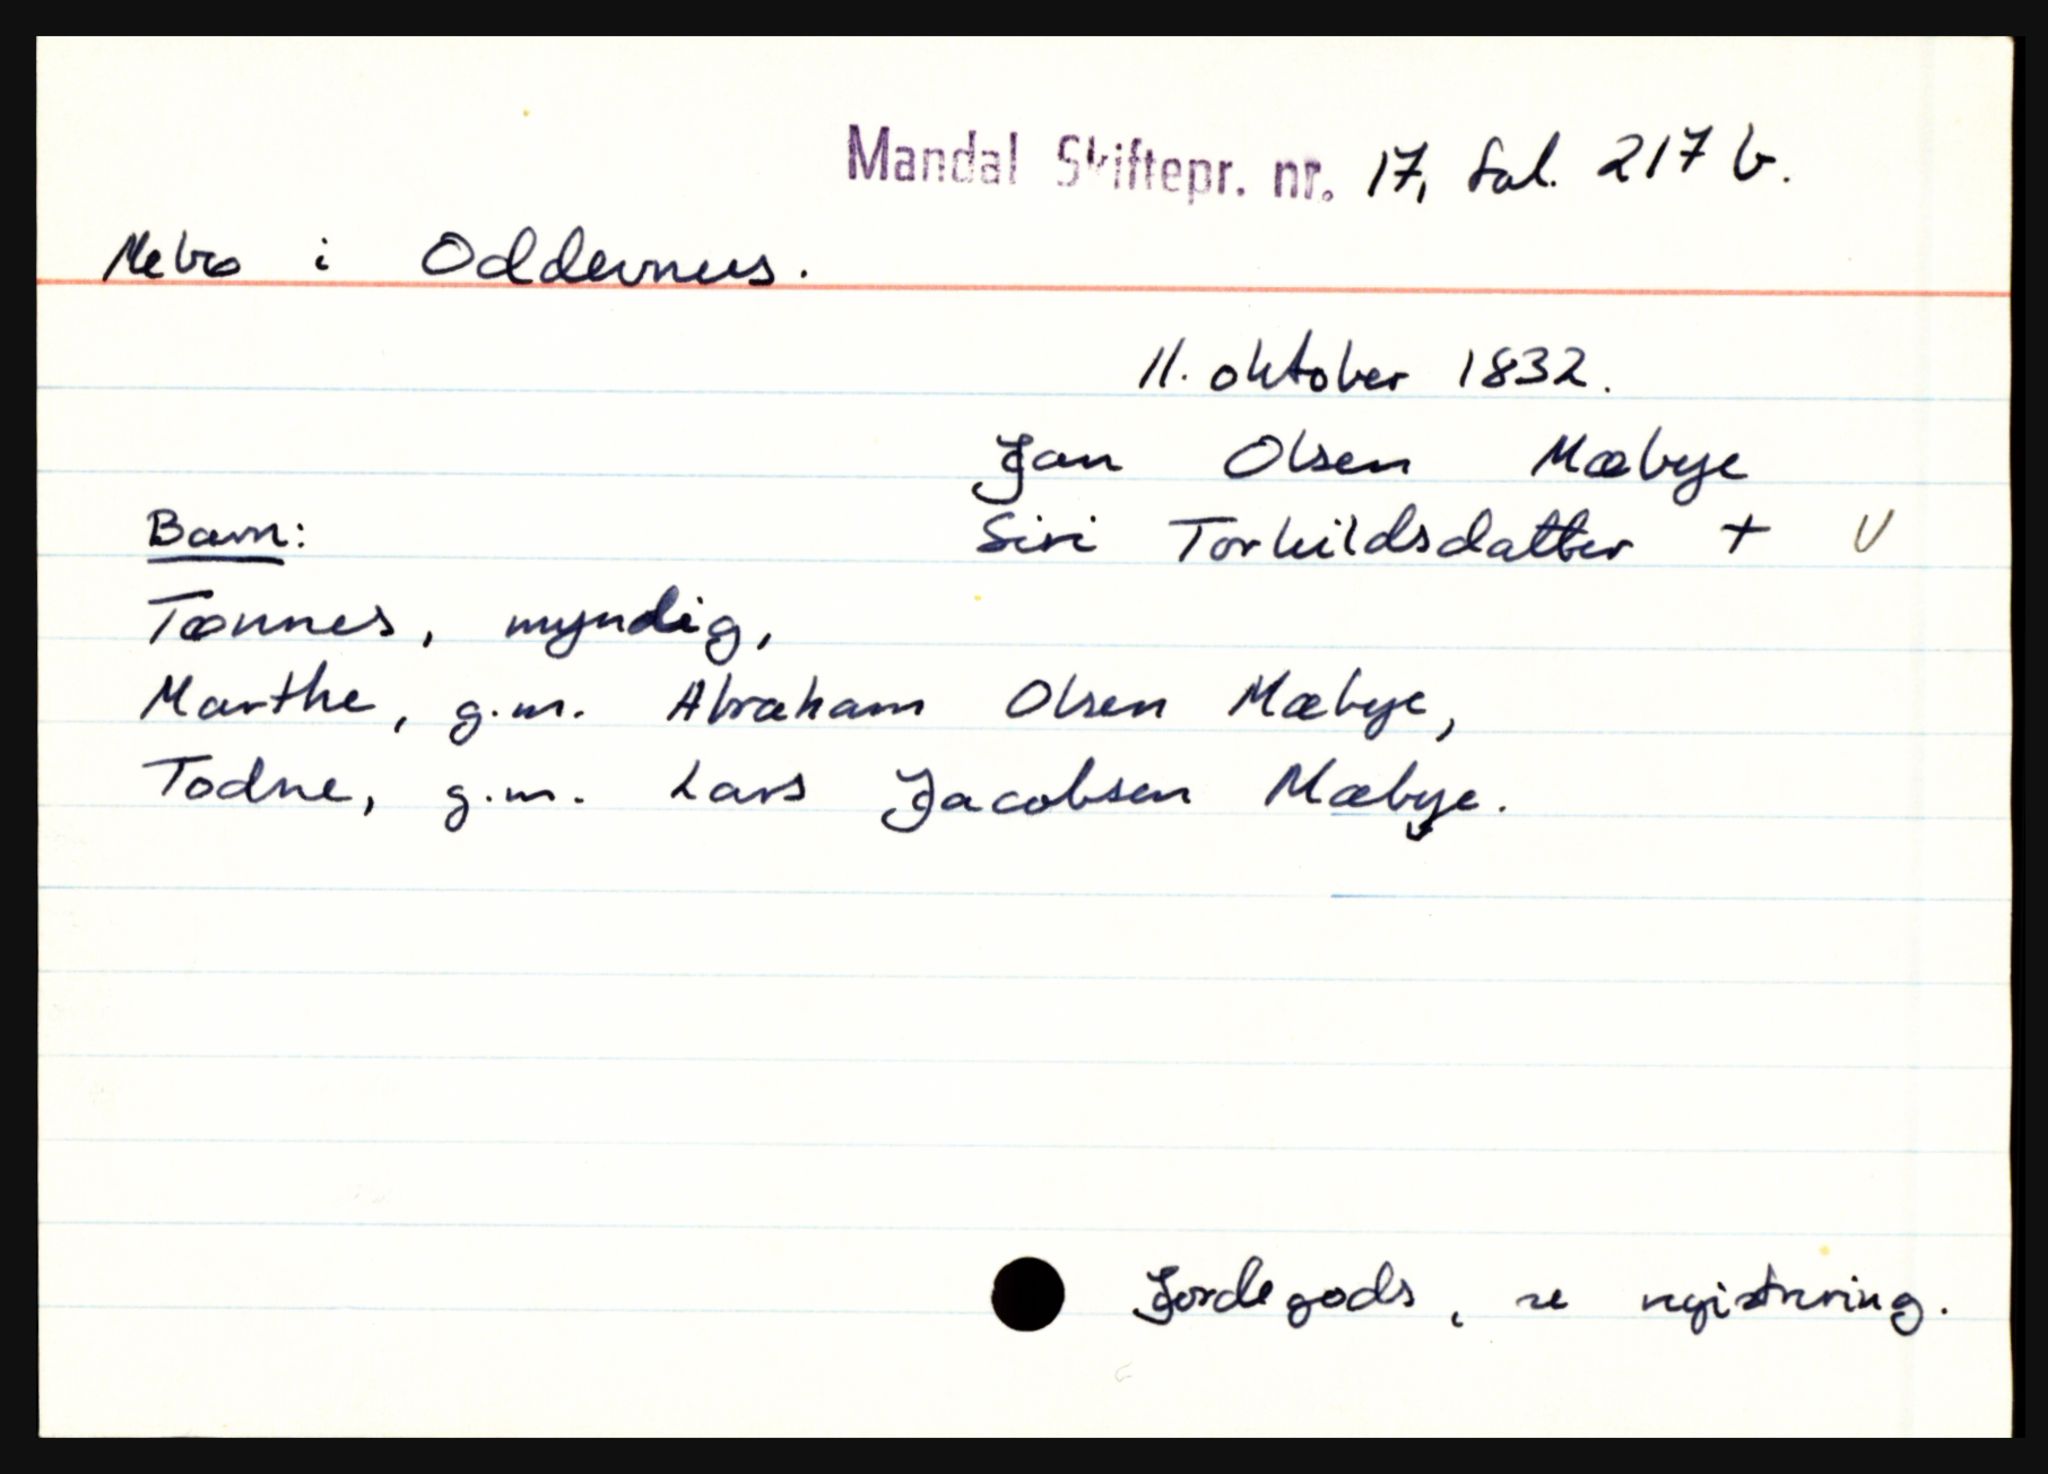 Mandal Skiftepr. nr. 17, fol. 217 b.
Mebø i Oddernes.
11. oktober 1832.
Jan Olsen Mæbye
Barn: Siri Torkildsdatter + V
Tønnes, myndig,
Marthe, g.m. Abraham Olsen Mæbye,
Todne, g.m. Lars Jacobsen Mæbye.
Jordegods, se registrering.